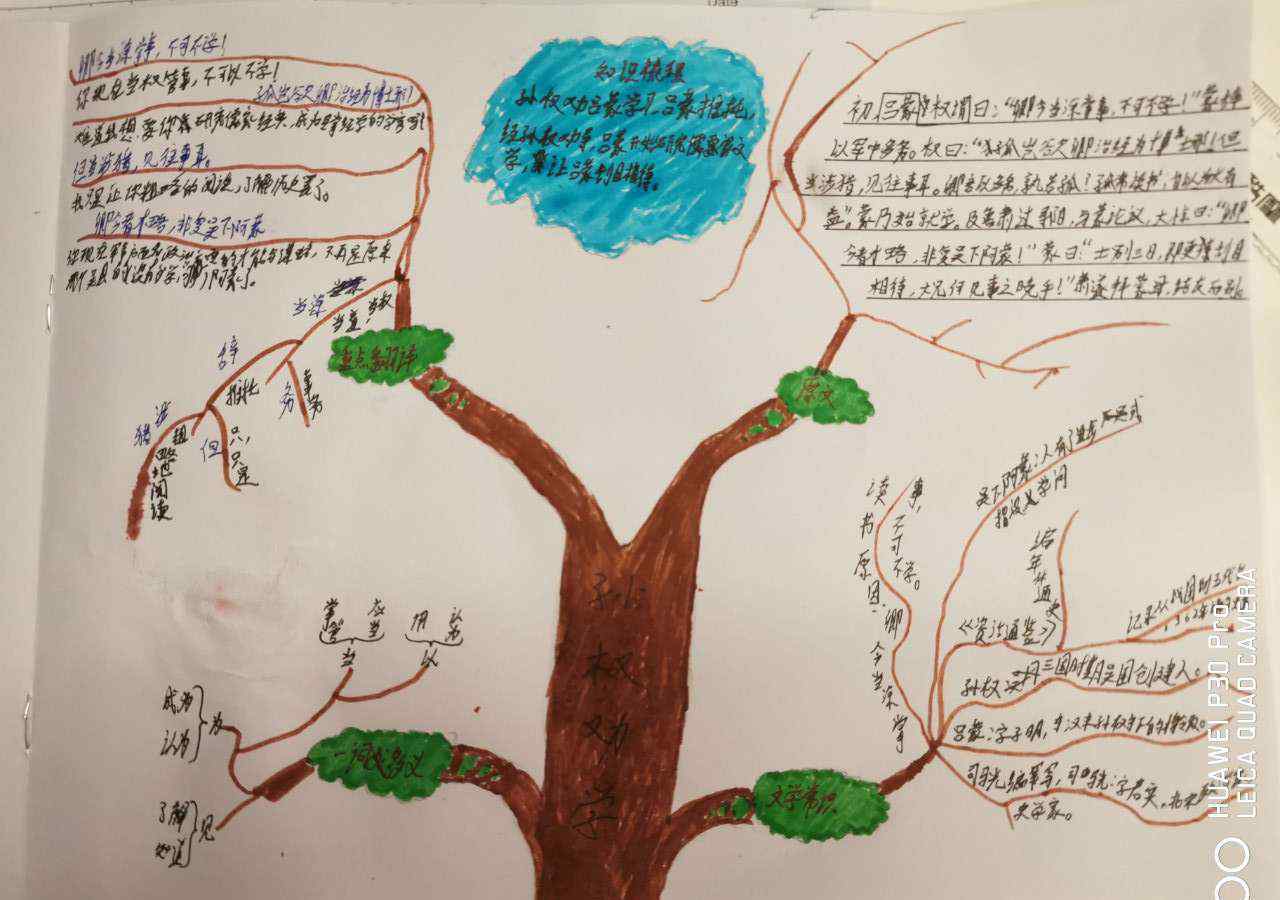 卿今当涂掌事，不可不学！
你现在当权管事，不可以不学！
孤岂欲卿治经为博士邪！
但当涉猎，见往事耳。
我只是让你粗略的阅读，了解历史罢了。
卿今者才略，非复吴下阿蒙
当涂
当道，当权
辞
推托
务
事务
涉猎
粗略地阅读
但
只，只是
重点翻译
知识梳理
孙权劝吕蒙学习，吕蒙推托，
经孙权劝事，吕蒙开始
学，
让吕蒙刮目相待。
初，权谓吕蒙曰：“卿今当涂掌事，不可不学！”蒙辞
以军中多务。权曰：“孤岂欲卿治经为博士邪！但
当涉猎，见往事耳。卿言多务，孰若孤？孤常读书，自以为大有
益。”蒙乃始就学。及鲁肃过寻阳，与蒙论议，大惊曰：“卿
今者才略，非复吴下阿蒙！”蒙曰：“士别三日，即更刮目
相待，大兄何见事之晚乎！”肃遂拜蒙母，结友而别。
原文
孙
权
劝
学
掌管
应当
当
用
认为
以
成为
认为
为
了解
知道
见
一词多义
文学常识
读书原因：卿今当涂掌
事，不可不学。
吴下阿蒙：人有了进步
指没学问
《资治通鉴》
编年体通史
记录从战国到五代
1362年
孙权：三国时期吴国创建人。
吕蒙：字子明，东汉末孙权手下的将领。
司马光编军写，司马光：字君实，北宋
史学家。
HUAWEI P30 Pro
LEICA QUAD CAMERA